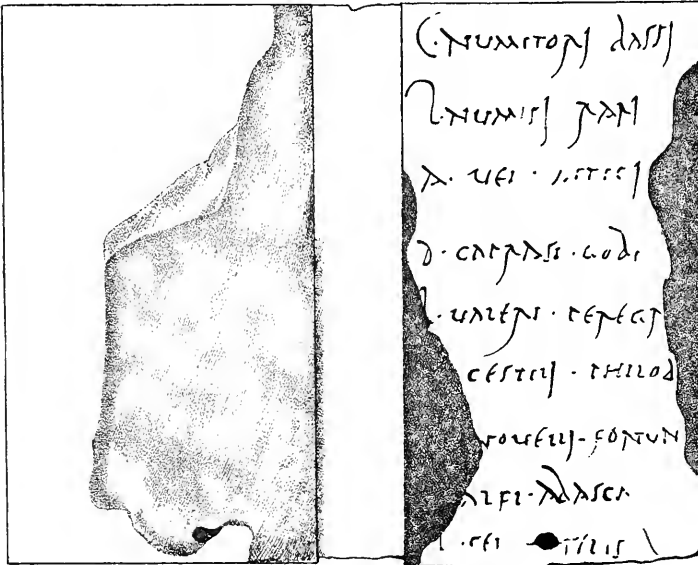 C·NUMITORI BASSI
L·NUMISI RARI
A·VEI·ATTICI
D·CAPRASI·GOBI
L·VALERI·PEREGR
CESTILI·PHILOD
NOVELLI·FORTUN
ALFI·ABASCA
CEI TILIS